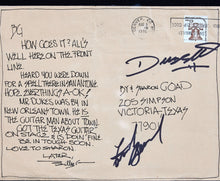 BG
HOW GOES IT? ALL'S
WELL HERE ON THE FRONT
LINE.
HEARD YOU WERE DOWN
FOR A SPELL THERE IN SAN ANTONE
HOPE EVERYTHING'S A-OK!
MR. DUKES WAS BY IN
NEW ORLEANS TOWN. HE IS
THE GUITAR MAN ABOUT TOWN
GOT THE TEXAS GUITAR
ON STAGE
BE IN TOUCH SOON.
LOVE TO SHARON
LATER,
BG & SHARON GOAD
205 SIMPSON
VICTORIA - TEXAS
77901